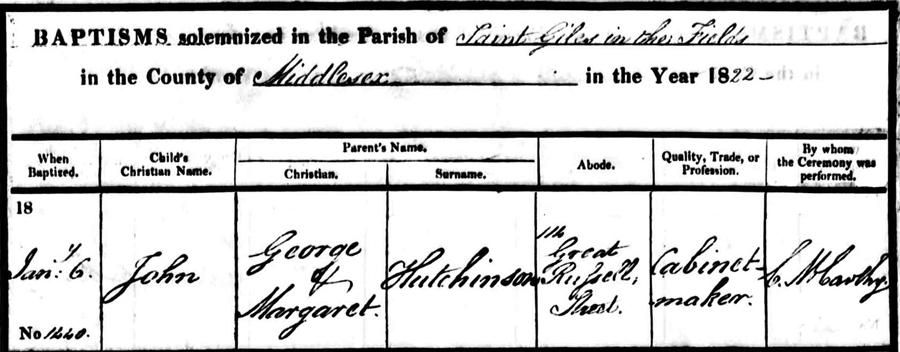 BAPTISMS solemnized in the Parish of Saint Giles in the Fields
in the County of Middlesex in the Year 1822
When Baptized. Child's Christian Name. Parent's Name. Abode. Quality, Trade, or Profession. By whom the Ceremony was performed.
Christian. Surname.
18
Jany. 6. John George & Margaret. Hutchinson Great Russell Street. Cabinet-maker.
No 1440.